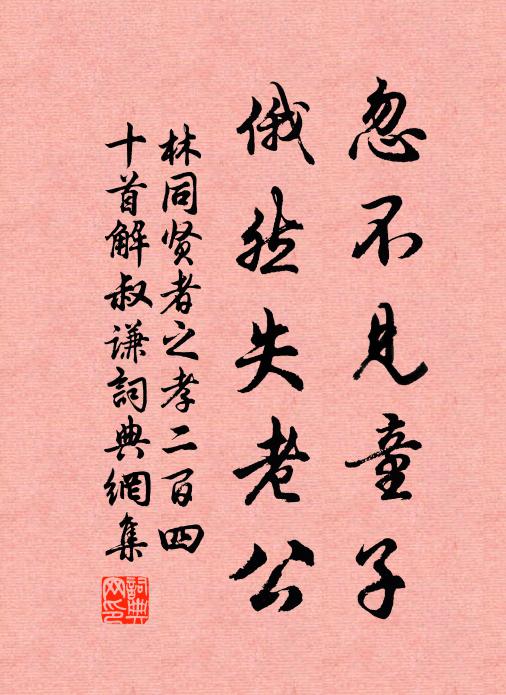 忽不见童子
俄然失老公
林同贤者之孝二百四
十首解叔谦詞典網集
詞典
网印